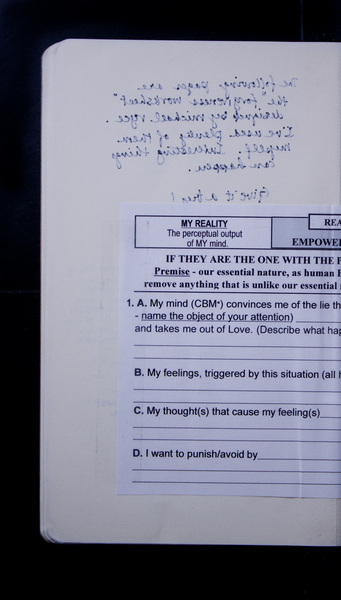 The following pages are
the "forgiveness worksheet"
designed by michael ryce.
I've used plenty of them
myself. Interesting things
can happen.
Give it a try!
MY REALITY
The perceptual output
of MY mind.
REA
EMPOWE
IF THEY ARE THE ONE WITH THE P
Premise - our essential nature, as human
remove anything that is unlike our essential
1. A. My mind (CBM*) convinces me of the lie th
- name the object of your attention)
and takes me out of Love. (Describe what hap
B. My feelings, triggered by this situation (all
C. My thought(s) that cause my feeling(s)
D. I want to punish/avoid by